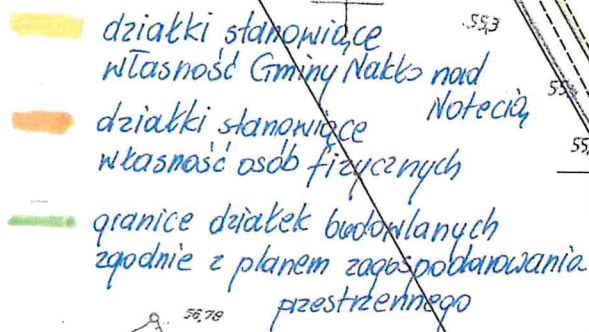 działki stanowiące
własność Gminy Nakło nad
Notecią
działki stanowiące
własność osób fizycznych
granice działek budowlanych
zgodnie z planem zagospodarowania
przestrzennego
55,3
55,
56,78